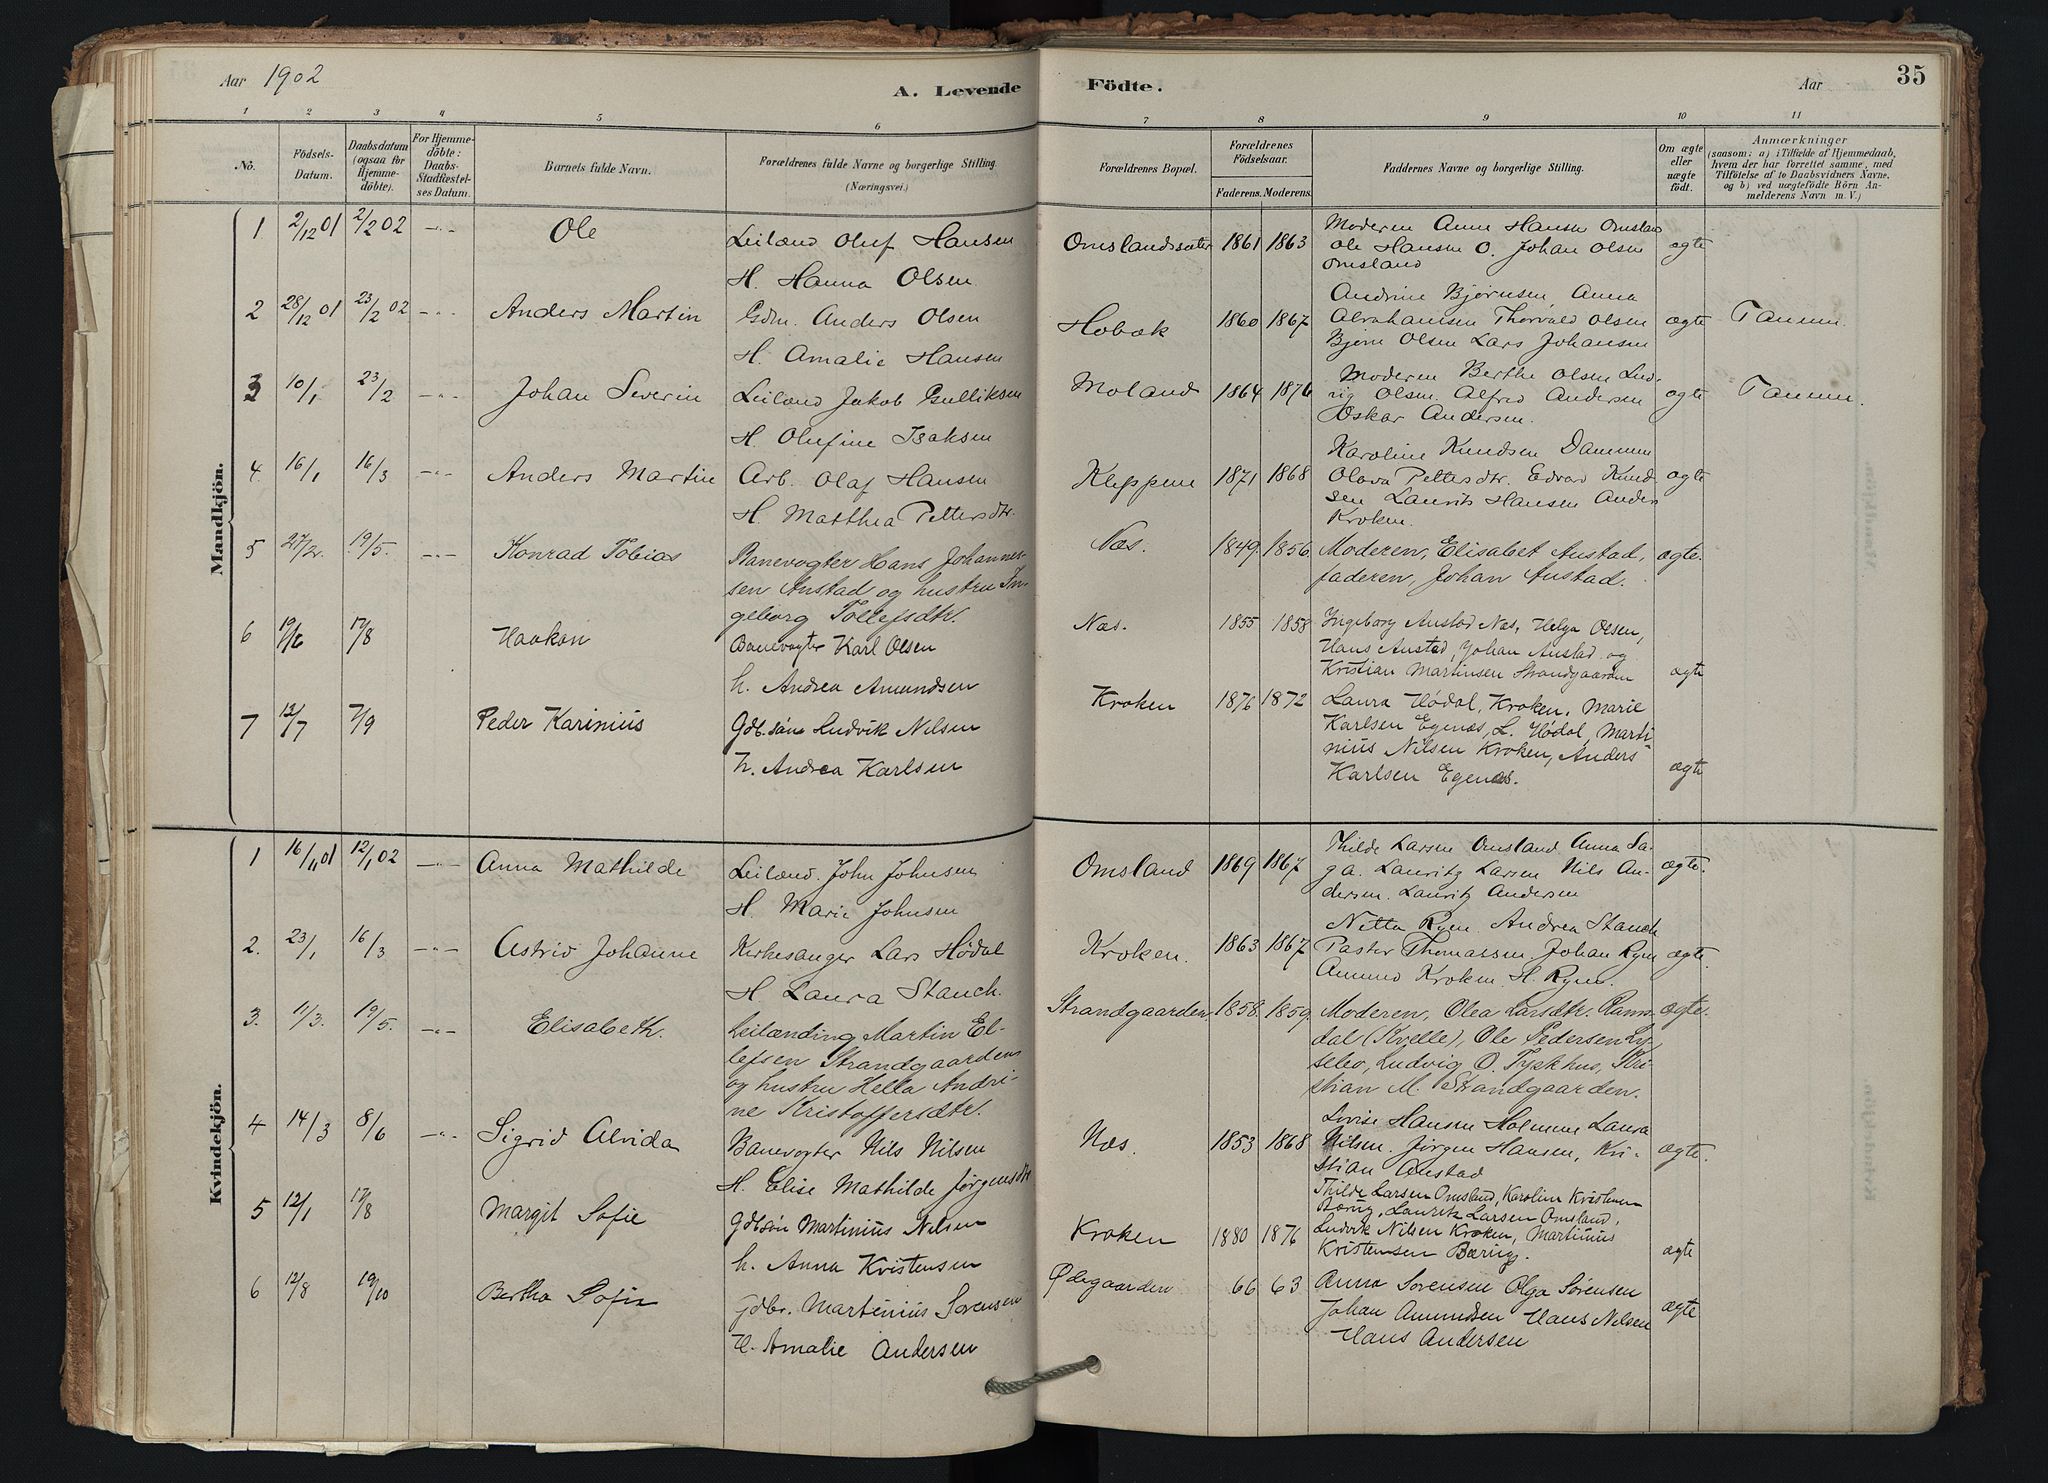 Aar 1902
A. Levende
Födte.
Aar
35
1 2 3 4 5 6 7 8 9 10 11
No.
Födsels-
Datum.
Daabsdatum
(ogsaa for
Hjemme-
döbte).
For Hjemme-
döbte:
Daabs-
Stadfæstel-
ses Datum.
Barnets fulde Navn.
Forældrenes fulde Navne og borgerlige Stilling.
(Næringsvei.)
Forældrenes Bopæl.
Forældrenes
Födselsaar.
Faderens. Moderens.
Faddernes Navne og borgerlige Stilling.
Om ægte
eller
uægte
födt.
Anmærkninger
(saasom: a) i Tilfælde af Hjemmedaab,
hvem der har forrettet samme, med
Tilföielse af to Daabsvidners Navne,
og b) ved uægtefödte Börn An-
melderens Navn m. V.)
Mandkjön.
1 2/12 01 2/2 02 -"- Ole
Leilænd Oluf Hansen
H. Hanna Olsen
Omslandssæter 1861 1863
Moderen Anne Hansen Omsland
Ole Hansen O. Johan Olsen
Omsland
ægte
2 28/12 01 23/2 02 -"- Anders Martin
Gdm. Anders Olsen
H. Amalie Hansen
Hobæk 1860 1867
Andrine Bjørnsen, Anna
Abrahamsen Thorvald Olsen
Bjørn Olsen Lars Johansen
ægte
Tanum.
3 10/1 23/2 -"- Johan Severin
Leilænd Jakob Gulliksen
H. Olufine Isaksen
Moland 1864 1876
Moderen Berthe Olsen Lud-
vig Olsen. Alfred Andersen
Oskar Andersen.
ægte
Tanum.
4. 16/1 16/3 -"- Anders Martin
Arb. Olaf Hansen
H. Matthea Pettersdtr.
Kleppene 1871 1868
Karoline Knudsen Dammen
Olava Pettersdtr. Edvard Knud-
sen Laurits Hansen Anders
Kroken.
ægte
5 27/2. 19/5. -"- Konrad Tobias
Banevogter Hans Johannes-
sen Austad og hustru In-
geborg Tollefsdtr.
Næs. 1849. 1856.
Moderen, Elisabet Austad,
faderen, Johan Austad.
ægte.
6 19/6 17/8
Haakon
Banevogter Karl Olsen
h. Andrea Amundsen
Næs. 1855 1858
Ingeborg Austad Næs, Helga Olsen,
Hans Austad, Johan Austad og
Kristian Martinsen Strandgaarden
ægte
7 12/7 7/9
Peder Karinius
Gdb.søn Ludvik Nilsen
h. Andrea Karlsen
Kroken 1876 1872
Laura Hødal, Kroken, Marie
Karlsen Egenæs, L. Hødal, Marti-
nius Nilsen Kroken, Anders
Karlsen Egenæs.
ægte
Kvindekjön.
1 16/11 01 12/1 02 -"- Anna Mathilde
Leilænd. John Johnsen
H. Marie Johnsen
Omsland 1869 1867
Thilde Larsen Omsland Anna Sa-
ga. Lauritz Larsen Nils An-
dersen. Lauritz Andersen
ægte.
2. 23/1 16/3 -"- Astrid Johanne
Kirkesanger Lars Hødal
H. Laura Stauch.
Kroken. 1863 1867
Netta Ryen. Andrea Stauch
Pastor Thomassen. Johan Ryen
Amund Kroken. H. Ryen.
ægte.
3. 11/3. 19/5. -"- Elisabeth.
Leilænding Martin El-
lefsen Strandgaarden
og hustru Hella Andri-
ne Kristoffersdtr.
Strandgaarden 1858. 1859.
Moderen, Olea Larsdtr. Ramn-
dal (Kvelle), Ole Pedersen
Ludvig O. Tyskhus, Kri-
stian M. Strandgaarden.
ægte.
4 14/3 8/6 -"- Sigrid Alvida
Banevogter Nils Nilsen
H. Elise Mathilde Jørgensdtr
Næs. 1853 1868
Lovise Hansen Holmene Laura
Nilsen. Jørgen Hansen, Kri-
stian Austad
ægte.
5 12/1 17/8
Margit Sofie
Gdb.søn Martinius Nilsen
h. Anna Kristensen
Kroken 1880 1876
Thilde Larsen Omsland, Karoline Kristensen
Bærug, Laurits Larsen Omsland,
Ludvik Nilsen Kroken, Martinius
Kristensen Bærug.
ægte
6 12/8 19/10
Bertha Sofie
gdbr. Martinius Sørensen
H. Amalie Andersen
Ødegaarden 66 63
Anna Sørensen Olga Sørensen
Johan Amundsen Hans Nilsen
Hans Andersen
ægte